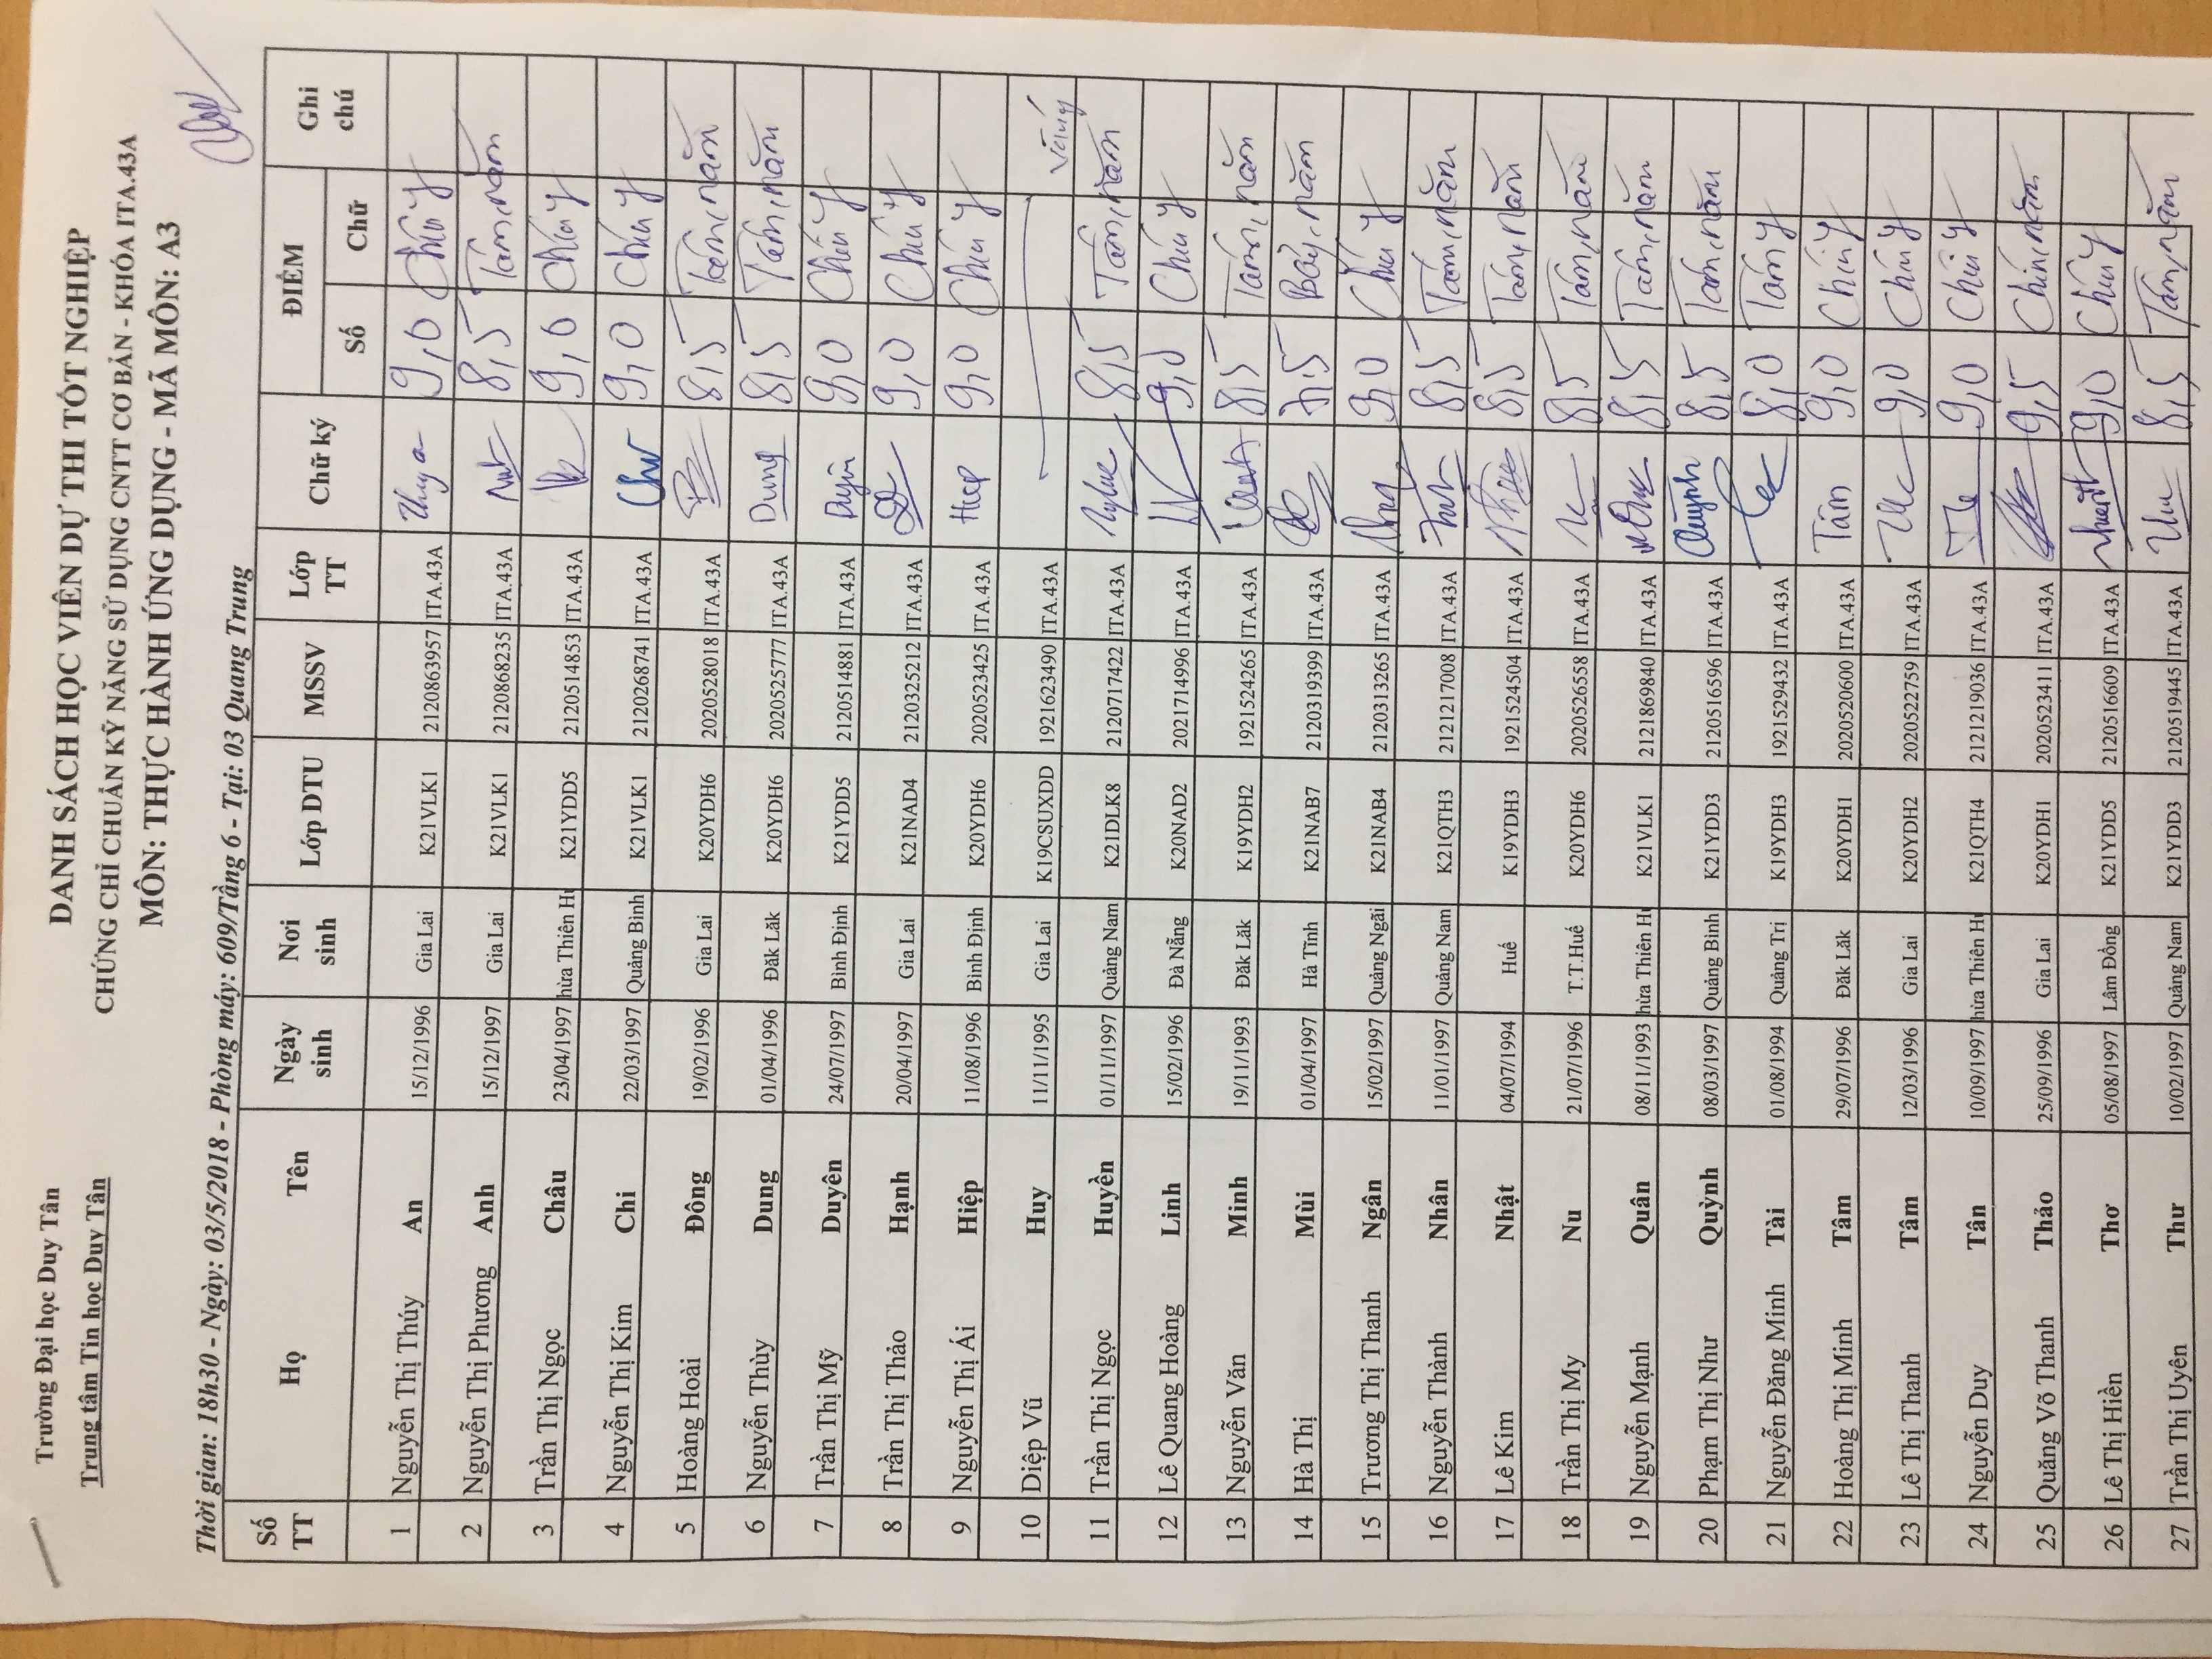 Trường Đại học Duy Tân
Trung tâm Tin học Duy Tân
DANH SÁCH HỌC VIÊN DỰ THI TỐT NGHIỆP
CHỨNG CHỈ CHUẨN KỸ NĂNG SỬ DỤNG CNTT CƠ BẢN - KHÓA ITA.43A
MÔN: THỰC HÀNH ỨNG DỤNG - MÃ MÔN: A3
Thời gian: 18h30 - Ngày: 03/5/2018 - Phòng máy: 609/Tầng 6 - Tại: 03 Quang Trung
Số TT Họ Tên Ngày sinh Nơi sinh Lớp DTU MSSV Lớp TT Chữ ký ĐIỂM Ghi chú
Số Chữ
1 Nguyễn Thị Thúy An 15/12/1996 Gia Lai K21VLK1 2120863957 ITA.43A 9,0 Chín y
2 Nguyễn Thị Phương Anh 15/12/1997 Gia Lai K21VLK1 2120868235 ITA.43A 8,5 Tám, năm
3 Trần Thị Ngọc Châu 23/04/1997 hừa Thiên Hu K21YDD5 2120514853 ITA.43A 9,0 Chín y
4 Nguyễn Thị Kim Chi 22/03/1997 Quảng Bình K21VLK1 2120268741 ITA.43A 9,0 Chín y
5 Hoàng Hoài Đông 19/02/1996 Gia Lai K20YDH6 2020528018 ITA.43A 8,5 Tám, năm
6 Nguyễn Thùy Dung 01/04/1996 Đăk Lăk K20YDH6 2020525777 ITA.43A Dung 8,5 Tám, năm
7 Trần Thị Mỹ Duyên 24/07/1997 Bình Định K21YDD5 2120514881 ITA.43A 9,0 Chín y
8 Trần Thị Thảo Hạnh 20/04/1997 Gia Lai K21NAD4 2120325212 ITA.43A 9,0 Chín y
9 Nguyễn Thị Ái Hiệp 11/08/1996 Bình Định K20YDH6 2020523425 ITA.43A Hiep 9,0 Chín y
10 Diệp Vũ Huy 11/11/1995 Gia Lai K19CSUXDD 1921623490 ITA.43A Vắng
11 Trần Thị Ngọc Huyền 01/11/1997 Quảng Nam K21DLK8 2120717422 ITA.43A 8,5 Tám, năm
12 Lê Quang Hoàng Linh 15/02/1996 Đà Nẵng K20NAD2 2021714996 ITA.43A 9,0 Chín y
13 Nguyễn Văn Minh 19/11/1993 Đăk Lăk K19YDH2 1921524265 ITA.43A 8,5 Tám, năm
14 Hà Thị Mùi 01/04/1997 Hà Tĩnh K21NAB7 2120319399 ITA.43A 7,5 Bảy, năm
15 Trương Thị Thanh Ngân 15/02/1997 Quảng Ngãi K21NAB4 2120313265 ITA.43A 9,0 Chín y
16 Nguyễn Thành Nhân 11/01/1997 Quảng Nam K21QTH3 2121217008 ITA.43A 8,5 Tám, năm
17 Lê Kim Nhật 04/07/1994 Huế K19YDH3 1921524504 ITA.43A 8,5 Tám, năm
18 Trần Thị My Nu 21/07/1996 T.T.Huế K20YDH6 2020526558 ITA.43A 8,5 Tám, năm
19 Nguyễn Mạnh Quân 08/11/1993 hừa Thiên Hu K21VLK1 2121869840 ITA.43A 8,5 Tám, năm
20 Phạm Thị Như Quỳnh 08/03/1997 Quảng Bình K21YDD3 2120516596 ITA.43A Quỳnh 8,5 Tám, năm
21 Nguyễn Đăng Minh Tài 01/08/1994 Quảng Trị K19YDH3 1921529432 ITA.43A 8,0 Tám y
22 Hoàng Thị Minh Tâm 29/07/1996 Đăk Lăk K20YDH1 2020520600 ITA.43A Tâm 9,0 Chín y
23 Lê Thị Thanh Tâm 12/03/1996 Gia Lai K20YDH2 2020522759 ITA.43A 9,0 Chín y
24 Nguyễn Duy Tân 10/09/1997 hừa Thiên Hu K21QTH4 2121219036 ITA.43A 9,0 Chín y
25 Quăng Võ Thanh Thảo 25/09/1996 Gia Lai K20YDH1 2020523411 ITA.43A 9,5 Chín, năm
26 Lê Thị Hiền Thơ 05/08/1997 Lâm Đồng K21YDD5 2120516609 ITA.43A 9,0 Chín y
27 Trần Thị Uyên Thư 10/02/1997 Quảng Nam K21YDD3 2120519445 ITA.43A 8,5 Tám, năm